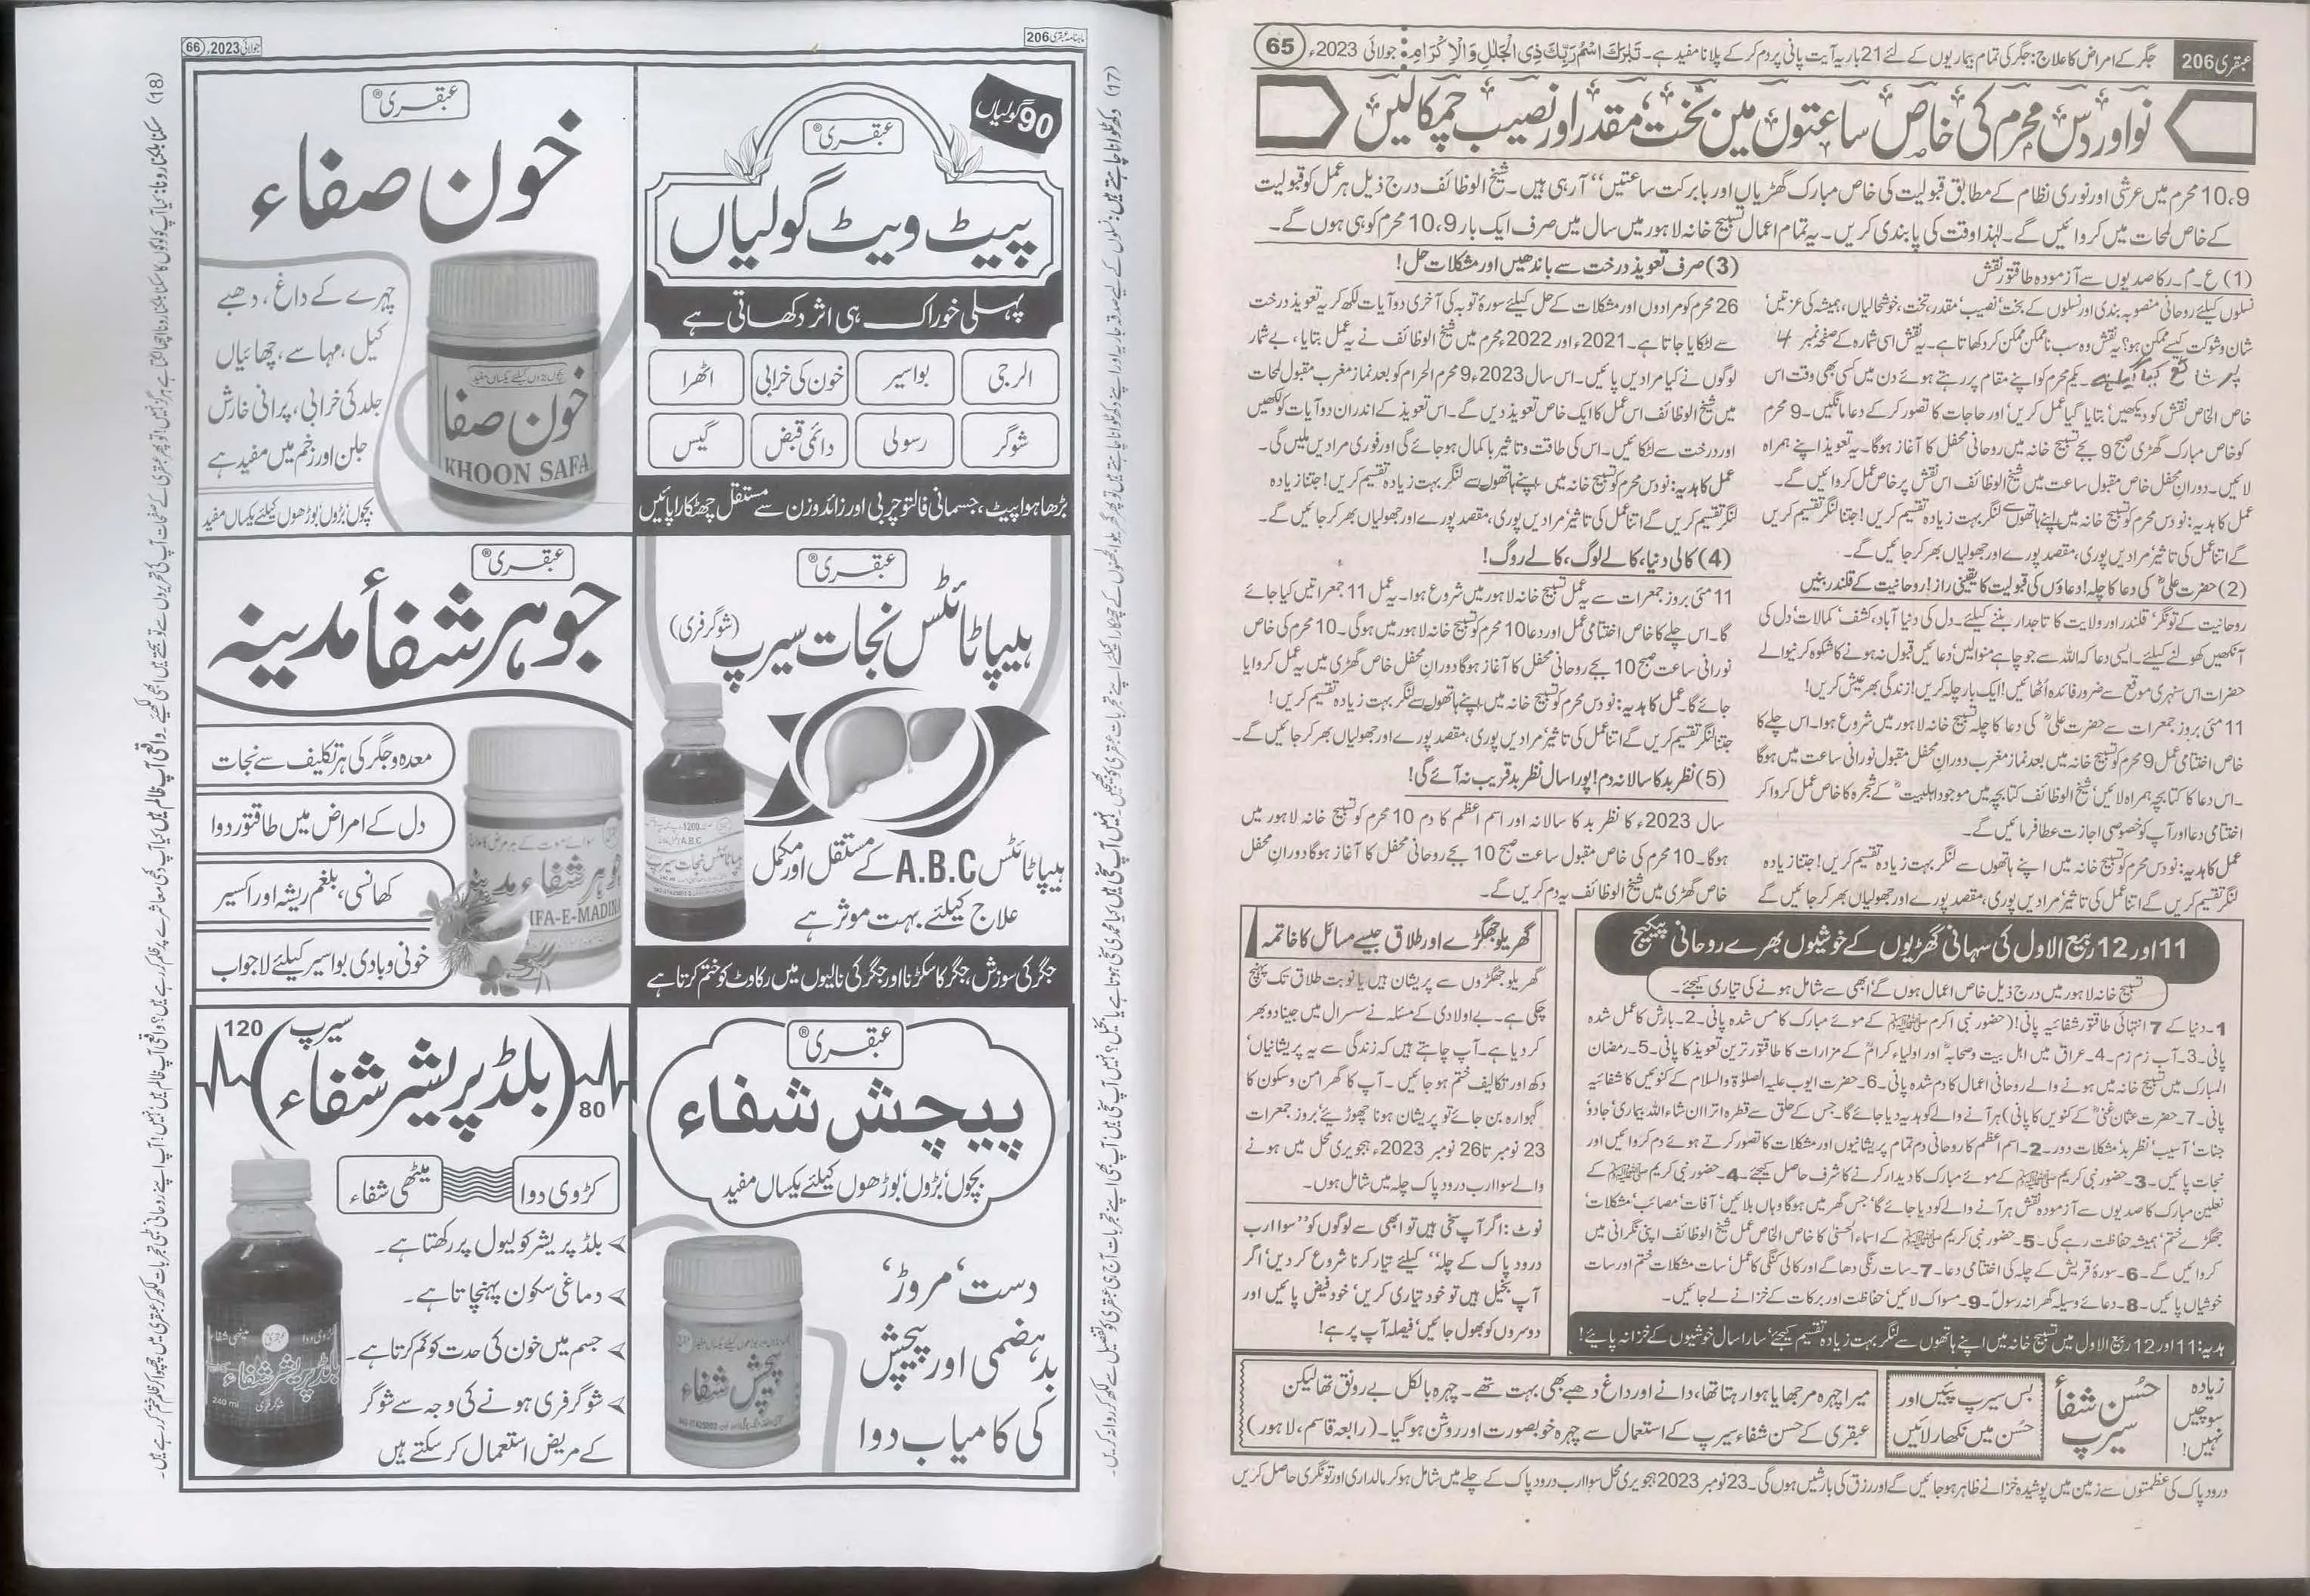 عبقری 206
جگر کے امراض کا علاج: جگر کی تمام بیماریوں کے لئے 21 بار یہ آیت پانی پر دم کر کے پلانا مفید ہے۔ تَبٰرَكَ اسْمُ رَبِّكَ ذِی الْجَلٰلِ وَ الْاِكْرَامِ جولائی 2023ء
65
نو اور دس محرم کی خاص ساعتوں میں بخت، مقدر اور نصیب چمکا لیں
9، 10 محرم میں عرشی اور نوری نظام کے مطابق قبولیت کی خاص مبارک گھڑیاں اور بابرکت ساعتیں‘‘ آ رہی ہیں۔ شیخ الوظائف درج ذیل ہر عمل کو قبولیت
کے خاص لمحات میں کروائیں گے۔ یہ تمام اعمال تسبیح خانہ لاہور میں سال میں صرف ایک بار 9، 10 محرم کو ہی ہوں گے۔ لہٰذا وقت کی پابندی کریں۔
(1) ع۔م۔ر کا صدیوں سے آزمودہ طاقتور نقش
نسلوں کیلئے روحانی منصوبہ بندی اور نسلوں کے بخت، نصیب، مقدر، تخت، خوشحالیاں، ہمیشہ کی عزتیں،
شان و شوکت کیسے ممکن ہو؟ یہ نقش وہ سب ناممکن ممکن کر دکھاتا ہے۔ یہ نقش اسی شمارہ کے صفحہ نمبر 4
پر شائع کیا گیا ہے۔ یکم محرم کو اپنے مقام پر رہتے ہوئے دن میں کسی بھی وقت اس
خاص الخاص نقش کو دیکھیں، بتایا گیا عمل کریں اور حاجات کا تصور کر کے دعا مانگیں۔ 9 محرم
کو خاص مبارک گھڑی صبح 9 بجے تسبیح خانہ میں روحانی محفل کا آغاز ہوگا۔ یہ تعویذ اپنے ہمراہ
لائیں۔ دورانِ محفل خاص مقبول ساعت میں شیخ الوظائف اس نقش پر خاص عمل کروائیں گے۔
عمل کا ہدیہ: نو دس محرم کو تسبیح خانہ میں اپنے ہاتھوں سے لنگر بہت زیادہ تقسیم کریں! جتنا لنگر تقسیم کریں
گے اتنا عمل کی تاثیر، مرادیں پوری، مقصد پورے اور جھولیاں بھر کر جائیں گے۔
(2) حضرت علیؓ کی دعا کا چلہ! دعاؤں کی قبولیت کا یقینی راز! روحانیت کے قلندر بنیں
روحانیت کے تونگر، قلندر اور ولایت کا تاجدار بننے کیلئے۔ دل کی دنیا آباد، کشف، کمالات، دل کی
آنکھیں کھولنے کیلئے۔ ایسی دعا کہ اللہ سے جو چاہے منوا لیں، دعائیں قبول نہ ہونے کا شکوہ کرنیوالے
حضرات اس سنہری موقع سے ضرور فائدہ اٹھائیں! ایک بار چلہ کریں! زندگی بھر عیش کریں!
11 مئی بروز جمعرات سے حضرت علیؓ کی دعا کا چلہ تسبیح خانہ لاہور میں شروع ہوا۔ اس چلے کا
خاص اختتامی عمل 9 محرم کو تسبیح خانہ میں بعد نماز مغرب دورانِ محفل مقبول نورانی ساعت میں ہوگا
۔ اس دعا کا کتابچہ ہمراہ لائیں، شیخ الوظائف کتابچہ میں موجود اہلبیتؓ کے شجرہ کا خاص عمل کروا کر
اختتامی دعا اور آپ کو خصوصی اجازت عطا فرمائیں گے۔
عمل کا ہدیہ: نو دس محرم کو تسبیح خانہ میں اپنے ہاتھوں سے لنگر بہت زیادہ تقسیم کریں! جتنا زیادہ
لنگر تقسیم کریں گے اتنا عمل کی تاثیر، مرادیں پوری، مقصد پورے اور جھولیاں بھر کر جائیں گے
(3) صرف تعویذ درخت سے باندھیں اور مشکلات حل!
26 محرم کو مرادوں اور مشکلات کے حل کیلئے سورۃ توبہ کی آخری دو آیات لکھ کر یہ تعویذ درخت
سے لٹکایا جاتا ہے۔ 2021ء اور 2022ء محرم میں شیخ الوظائف نے یہ عمل بتایا، بے شمار
لوگوں نے کیا مرادیں پائیں۔ اس سال 2023ء 9 محرم الحرام کو بعد نماز مغرب مقبول لمحات
میں شیخ الوظائف اس عمل کا ایک خاص تعویذ دیں گے۔ اس تعویذ کے اندر ان دو آیات کو لکھیں
اور درخت سے لٹکائیں۔ اس کی طاقت و تاثیر باکمال ہو جائے گی اور فوری مرادیں ملیں گی۔
عمل کا ہدیہ: نو دس محرم کو تسبیح خانہ میں اپنے ہاتھوں سے لنگر بہت زیادہ تقسیم کریں! جتنا زیادہ
لنگر تقسیم کریں گے اتنا عمل کی تاثیر، مرادیں پوری، مقصد پورے اور جھولیاں بھر کر جائیں گے۔
(4) کالی دنیا، کالے لوگ، کالے روگ!
11 مئی بروز جمعرات سے یہ عمل تسبیح خانہ لاہور میں شروع ہوا۔ یہ عمل 11 جمعراتیں کیا جائے
گا۔ اس چلے کا خاص اختتامی عمل اور دعا 10 محرم کو تسبیح خانہ لاہور میں ہوگی۔ 10 محرم کی خاص
نورانی ساعت صبح 10 بجے روحانی محفل کا آغاز ہوگا دورانِ محفل خاص گھڑی میں یہ عمل کروایا
جائے گا۔ عمل کا ہدیہ: نو دس محرم کو تسبیح خانہ میں اپنے ہاتھوں سے لنگر بہت زیادہ تقسیم کریں!
جتنا لنگر تقسیم کریں گے اتنا عمل کی تاثیر، مرادیں پوری، مقصد پورے اور جھولیاں بھر کر جائیں گے۔
(5) نظر بد کا سالانہ دم! پورا سال نظر بد قریب نہ آئے گی!
سال 2023ء کا نظر بد کا سالانہ اور اسم اعظم کا دم 10 محرم کو تسبیح خانہ لاہور میں
ہوگا۔ 10 محرم کی خاص مقبول ساعت صبح 10 بجے روحانی محفل کا آغاز ہوگا دورانِ محفل
خاص گھڑی میں شیخ الوظائف یہ دم کریں گے۔
11 اور 12 ربیع الاول کی سہانی گھڑیوں کے خوشیوں بھرے روحانی پیکیج
تسبیح خانہ لاہور میں درج ذیل خاص اعمال ہوں گے، ابھی سے شامل ہونے کی تیاری کیجئے۔
1۔ دنیا کے 7 انتہائی طاقتور شفائیہ پانی! (حضور نبی اکرم ﷺ کے موئے مبارک کا مس شدہ پانی۔ 2۔ بارش کا عمل شدہ
پانی۔ 3۔ آب زم زم۔ 4۔ عراق میں اہل بیت و صحابہؓ اور اولیاء کرامؒ کے مزارات کا طاقتور ترین تعویذ کا پانی۔ 5۔ رمضان
المبارک میں تسبیح خانہ میں ہونے والے روحانی اعمال کا دم شدہ پانی۔ 6۔ حضرت ایوب علیہ الصلوٰۃ والسلام کے کنوئیں کا شفائیہ
پانی۔ 7۔ حضرت عثمان غنیؓ کے کنویں کا پانی) ہر آنے والے کو ہدیہ دیا جائے گا۔ جس کے حلق سے قطرہ اترا ان شاء اللہ بیماری، جادو،
جنات، آسیب، نظر بد، مشکلات دور۔ 2۔ اسم اعظم کا روحانی دم تمام پریشانیوں اور مشکلات کا تصور کرتے ہوئے دم کروائیں اور
نجات پائیں۔ 3۔ حضور نبی کریم ﷺ کے موئے مبارک کا دیدار کرنے کا شرف حاصل کیجئے۔ 4۔ حضور نبی کریم ﷺ کے
نعلین مبارک کا صدیوں سے آزمودہ نقش ہر آنے والے کو دیا جائے گا، جس گھر میں ہوگا وہاں بلائیں، آفات، مصائب، مشکلات،
جھگڑے ختم، ہمیشہ حفاظت رہے گی۔ 5۔ حضور نبی کریم ﷺ کے اسماء الحسنیٰ کا خاص الخاص عمل شیخ الوظائف اپنی نگرانی میں
کروائیں گے۔ 6۔ سورۃ قریش کے چلہ کی اختتامی دعا۔ 7۔ سات رنگی دھاگے اور کالی کنگی کا عمل، سات مشکلات ختم اور سات
خوشیاں پائیں۔ 8۔ دعائے وسیلہ گھرانہ رسولؐ۔ 9۔ مسواک لائیں، حفاظت اور برکات کے خزانے لے جائیں۔
ہدیہ: 11 اور 12 ربیع الاول میں تسبیح خانہ میں اپنے ہاتھوں سے لنگر بہت زیادہ تقسیم کیجئے، سارا سال خوشیوں کے خزانہ پائیے!
گھریلو جھگڑے اور طلاق جیسے مسائل کا خاتمہ
گھریلو جھگڑوں سے پریشان ہیں یا نوبت طلاق تک پہنچ
چکی ہے۔ بے اولادی کے مسئلہ نے سسرال میں جینا دوبھر
کر دیا ہے۔ آپ چاہتے ہیں کہ زندگی سے یہ پریشانیاں،
دکھ اور تکالیف ختم ہو جائیں۔ آپ کا گھر امن و سکون کا
گہوارہ بن جائے تو پریشان ہونا چھوڑیئے، بروز جمعرات
23 نومبر تا 26 نومبر 2023ء ہجویری محل میں ہونے
والے سوا ارب درود پاک چلہ میں شامل ہوں۔
نوٹ: اگر آپ سخی ہیں تو ابھی سے لوگوں کو ’’سوا ارب
درود پاک کے چلہ‘‘ کیلئے تیار کرنا شروع کر دیں، اگر
آپ بخیل ہیں تو خود تیاری کریں، خود فیض پائیں اور
دوسروں کو بھول جائیں، فیصلہ آپ پر ہے!
زیادہ
سوچیں
نہیں!
حُسن شفاء
سیرپ
بس سیرپ پئیں اور
حُسن میں نکھار لائیں
میرا چہرہ مرجھایا ہوا رہتا تھا، دانے اور داغ دھبے بھی بہت تھے۔ چہرہ بالکل بے رونق تھا لیکن
عبقری کے حسن شفاء سیرپ کے استعمال سے چہرہ خوبصورت اور روشن ہوگیا۔ (رابعہ قاسم، لاہور)
درود پاک کی عظمتوں سے زمین میں پوشیدہ خزانے ظاہر ہو جائیں گے اور رزق کی بارشیں ہوں گی۔ 23 نومبر 2023 ہجویری محل سوا ارب درود پاک کے چلے میں شامل ہو کر مالداری اور تونگری حاصل کریں
ماہنامہ عبقری 206
جولائی 2023ء
66
90 گولیاں
عبقری®
پیٹ ویٹ گولیاں
پہلی خوراک ہی اثر دکھاتی ہے
الرجی
بواسیر
خون کی خرابی
اٹھرا
شوگر
رسولی
دائمی قبض
گیس
بڑھا ہوا پیٹ، جسمانی فالتو چربی اور زائد وزن سے مستقل چھٹکارا پائیں
عبقری®
خون صفاء
چہرے کے داغ، دھبے
کیل، مہاسے، چھائیاں
جلد کی خرابی، پرانی خارش
جلن اور زخم میں مفید ہے
بچوں، بڑوں، بوڑھوں کیلئے یکساں مفید
خون صفا
KHOON SAFA
عبقری®
ہیپاٹائٹس نجات سیرپ (شوگر فری)
ہیپاٹائٹس A.B.C کے مستقل اور مکمل
علاج کیلئے بہت موثر ہے
A.B.C
ہیپاٹائٹس نجات سیرپ
جگر کی سوزش، جگر کا سکڑنا اور جگر کی نالیوں میں رکاوٹ کو ختم کرتا ہے
عبقری®
جوہر شفاء مدینہ
معدہ و جگر کی ہر تکلیف سے نجات
دل کے امراض میں طاقتور دوا
کھانسی، بلغم ریشہ اور اکسیر
خونی و بادی بواسیر کیلئے لاجواب
جوہر شفاء مدینہ
IFA-E-MADINA
عبقری®
پیچش شفاء
بچوں، بڑوں، بوڑھوں کیلئے یکساں مفید
دست، مروڑ،
بدہضمی اور پیچش
کی کامیاب دوا
پیچش شفاء
120
سیرپ
(بلڈ پریشر شفاء)
80
کڑوی دوا
میٹھی شفاء
بلڈ پریشر کو لیول پر رکھتا ہے۔
دماغی سکون پہنچاتا ہے۔
جسم میں خون کی حدت کو کم کرتا ہے۔
شوگر فری ہونے کی وجہ سے شوگر
کے مریض استعمال کر سکتے ہیں
کڑوی دوا
عبقری
میٹھی شفاء
بلڈ پریشر شفاء
شوگر فری
240 ml
(17)
(18)